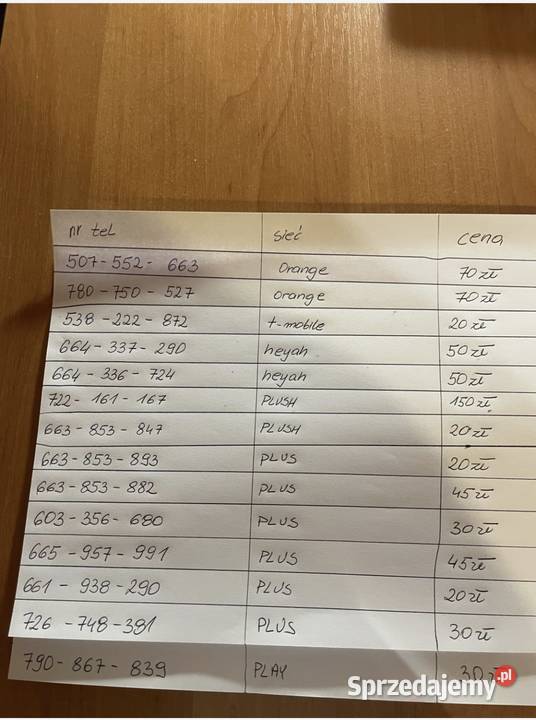 nr tel sieć cena
507-552-663 Orange 70 zł
780-750-527 orange 70 zł
538-222-872 t-mobile 20 zł
664-337-290 heyah 50 zł
664-336-724 heyah 50 zł
722-161-167 PLUSH 150 zł
663-853-847 PLUSH 20 zł
663-853-893 PLUS 20 zł
663-853-882 PLUS 45 zł
603-356-680 PLUS 30 zł
665-957-991 PLUS 45 zł
661-938-290 PLUS 20 zł
726-748-381 PLUS 30 zł
790-867-839 PLAY 30 zł
Sprzedajemy.pl